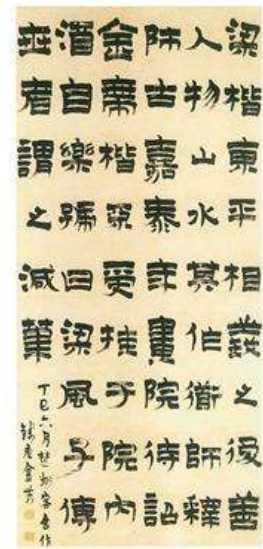 梁楷東平相義之後善
人物山水其伯衜師釋
師古嘉泰年畫院待詔
金帶楷受挂于院內
酒自樂號曰梁風子傳
世者謂之減筆
丁巳六月客舍作